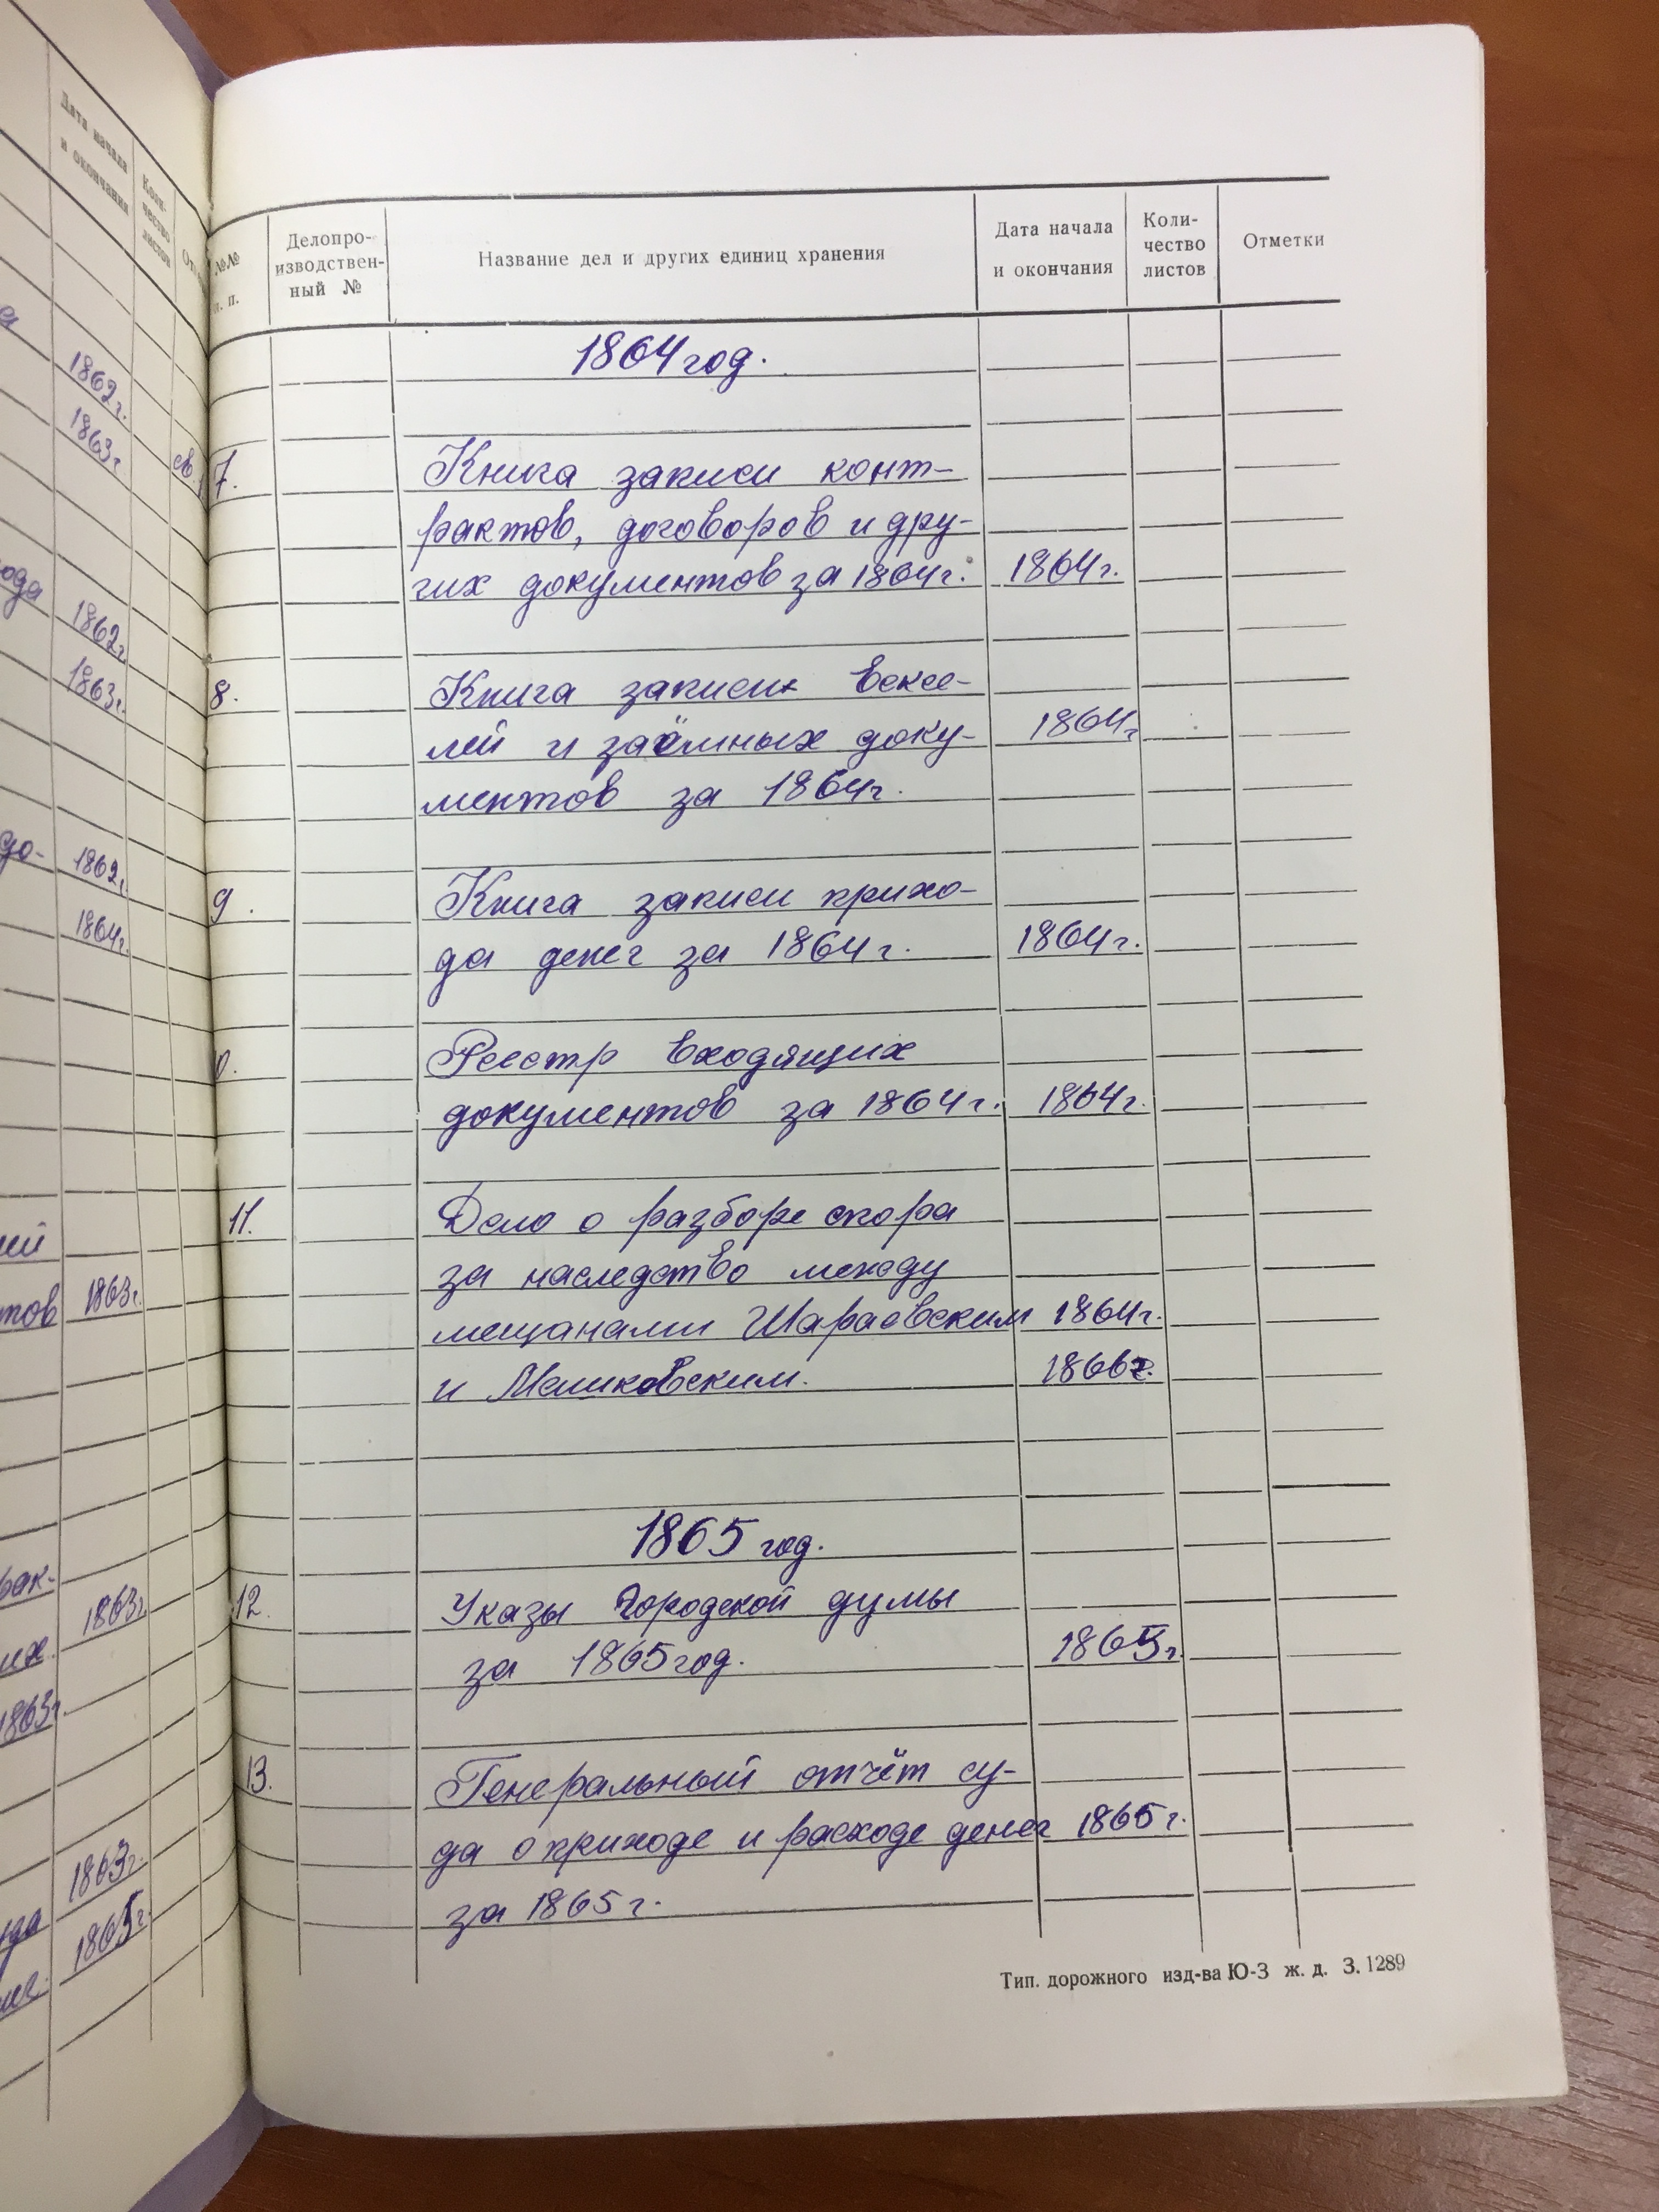 Дата начала
и окончания
Коли-
чество
листов
1862г.
1863г
1862г.
1863г.
до-
1862г.
1864г.
1863г.
1863г.
1863г.
1863г.
1865г.
№№
п. п.
Делопро-
изводствен-
ный №
Название дел и других единиц хранения
Дата начала
и окончания
Коли-
чество
листов
Отметки
1864 год.
7. Книга записи конт-
рактов, договоров и дру-
гих документов за 1864г. 1864г.
8. Книга записи вексе-
лей и заёмных доку- 1864г
ментов за 1864г.
9. Книга записи прихо-
да денег за 1864г. 1864г.
0. Реестр входящих
документов за 1864г. 1864г.
11. Дело о разборе спора
за наследство между
мещанами Шараевским 1864г.
и Машковским. 1866г.
1865 год.
12. Указы Городской думы
за 1865 год. 1865г.
13. Генеральный отчёт су-
да о приходе и расходе денег 1865г.
за 1865г.
Тип. дорожного изд-ва Ю-З ж. д. З. 1289